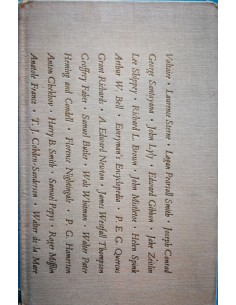 Voltaire · Laurence Sterne · Logan Pearsall Smith · Joseph Conrad
George Santayana · John Lyly · Edward Gibbon · Jake Zeitlin
Lee Shippey · Richard L. Brown · John Mistletoe · Helen Spink
Arthur W. Bell · Everyman's Encyclopedia · P. E. G. Quercus
Grant Richards · A. Edward Newton · James Westfall Thompson
Geoffrey Faber · Samuel Butler · Walt Whitman · Walter Pater
Heming and Condell · Florence Nightingale · P. G. Hamerton
Anton Chekhov · Harry B. Smith · Samuel Pepys · Roger Mifflin
Anatole France · T. J. Cobden-Sanderson · Walter de la Mare